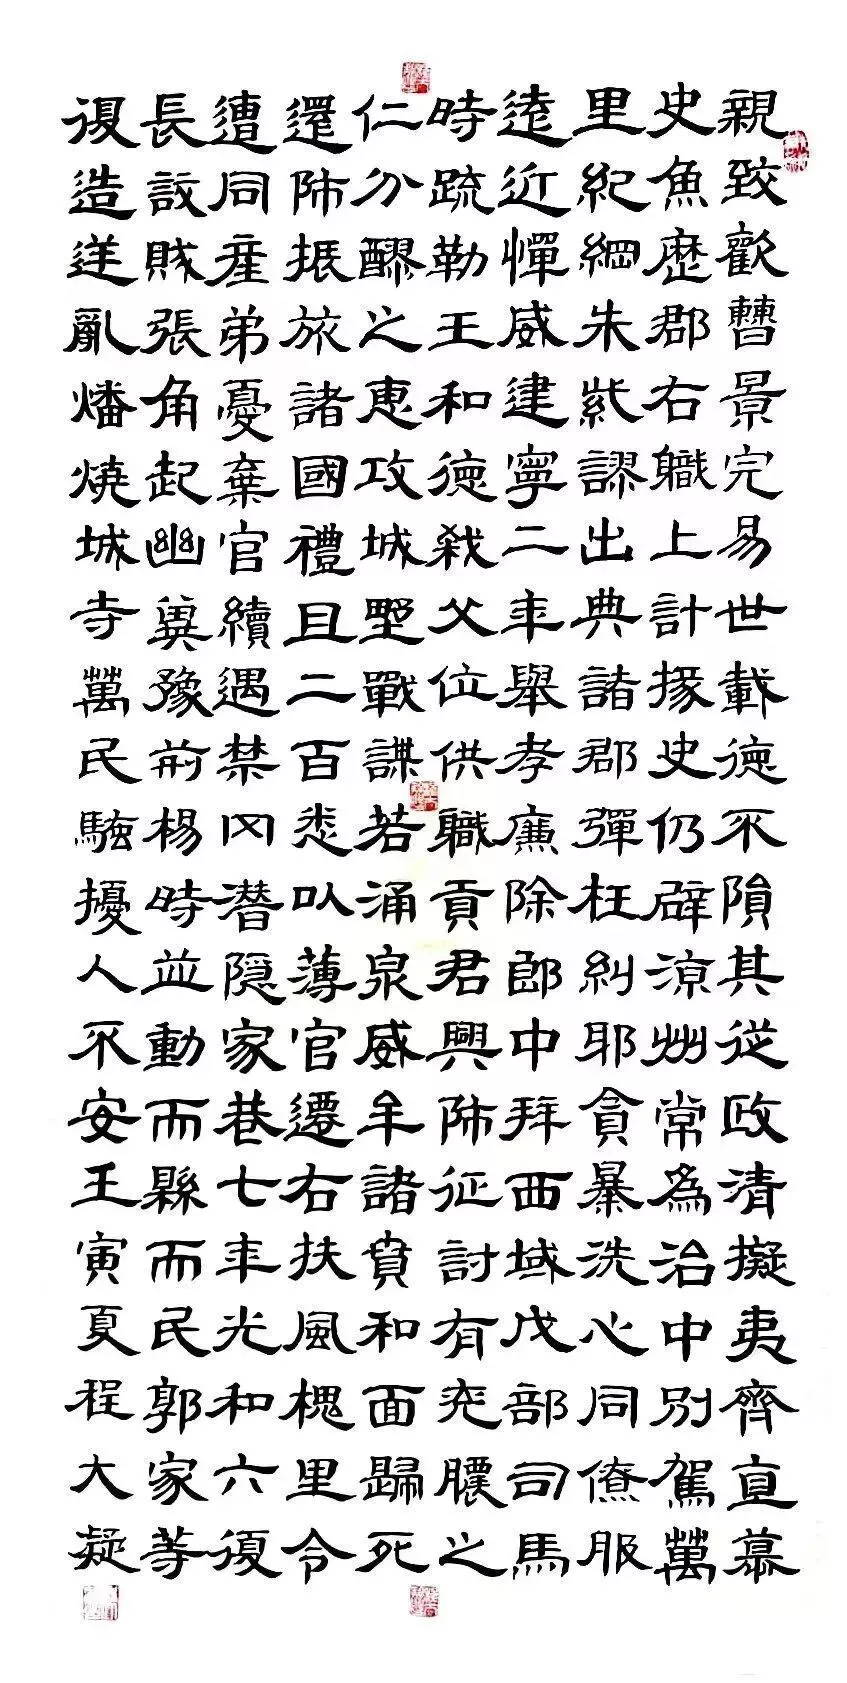 親致歡曹景完易世載德不隕其從政清擬夷齊直慕
史魚歷郡右職上計掾史仍辟涼州常為治中別駕萬
里紀綱朱紫謬出典諸郡彈枉糾耶貪暴洗心同僚服
遠近憚威建寧二年舉孝廉除郎中拜西域戊部司馬
時疏勒王和德弒父位供職貢君興師征討有兗膿之
仁分醪之惠攻城野戰謀若涌泉威牟諸賁和面歸死
還師振旅諸國禮且二百悉以薄官遷右扶風槐里令
遭同產弟憂棄官續遇禁冈潛隱家巷七年光和六復
長訞賊張角起幽冀豫荊楊時並動而縣而民郭家等
復造逆亂燔燒城寺萬民騷擾人不安壬寅夏程大凝